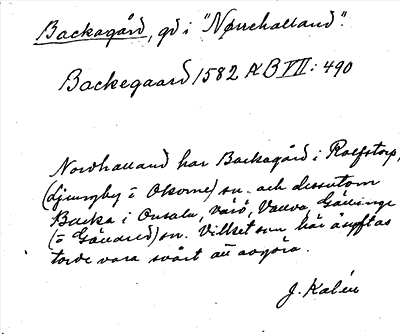 Backagård, gd i "Nørrehalland".
Backegaard 1582 ÆB VII: 490
Nordhalland har Backagård i Rolfstorp,
(djungby = Okome) sn. och dessutom
Backa i Onsala, Värö, Valva, Gällinge
(= Gåndred) sn. Vilket som här åsyftas
torde vara svårt att avgöra.
J. Kalén